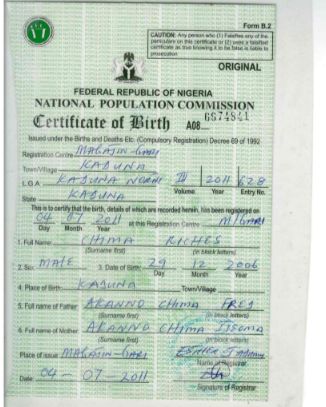 Form B.2
CAUTION: Any person who (1) Falsifies any of the
particulars on this certificate or (2) uses a falsified
certificate as true knowing it to be false is liable to
prosecution
ORIGINAL
FEDERAL REPUBLIC OF NIGERIA
NATIONAL POPULATION COMMISSION
Certificate of Birth A08 6674841
Issued under the Births and Deaths Etc. (Compulsory Registration) Decree 69 of 1992
Registration Centre MAGAJIN-GARI
Town/Village KADUNA
L.G.A KADUNA NORTH III 2011 628
State KADUNA Volume Year Entry No.
This is to certify that the birth, details of which are recorded herein, has been registered on
04 07 2011 at this Registration Centre M/GARI
Day Month Year
1. Full Name CHIMA RICHES
(Surname first) (in block letters)
2. Sex MALE 3. Date of Birth 29 12 2006
Day Month Year
4. Place of Birth KADUNA Town/Village
5. Full name of Father AKANNO CHIMA FRED
(Surname first) (in block letters)
6. Full name of Mother AKANNO CHIMA IJEOMA
(Surname first) (in block letters)
Place of issue MAGAJIN-GARI ESTHER
Name of Registrar
Date 04-07-2011
Signature of Registrar